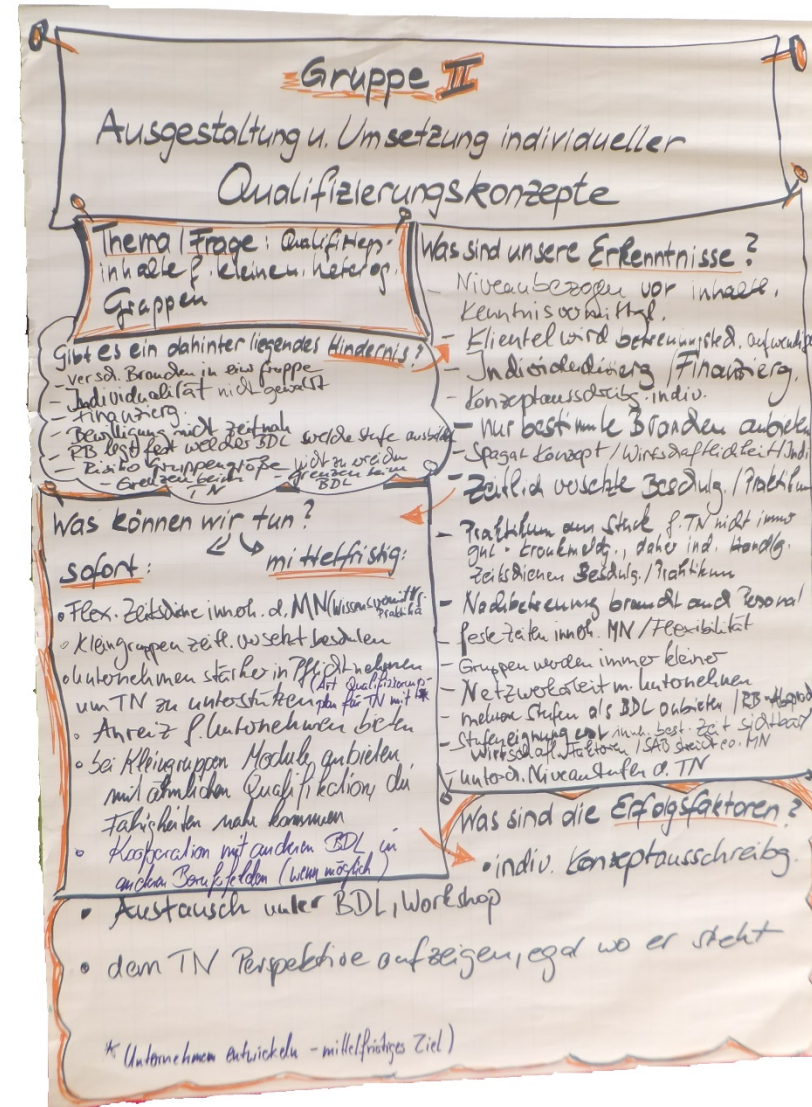 Gruppe III
Ausgestaltung u. Umsetzung individueller
Qualifizierungskonzepte
Thema / Frage: Qualifiziergs.-
inhalte f. kleinen, heterog.
Gruppen
Gibt es ein dahinter liegendes Hindernis?
- versch. Branchen in eine Gruppe
- Individualität nicht gewollt
- Finanzierg.
- Bewilligung nicht zeitnah
- RB legt fest welcher BDL welche Stufe
- Risiko Gruppengröße nicht zu
- Grenzen beim TN
- Grenzen beim BDL
Was können wir tun?
sofort: mittelfristig:
• Flex. Zeitschiene innerh. d. MN (Wissensvermittlg.
Praktika
• Kleingruppen zeitl. versetzt beschulen
• Unternehmen stärker in Pflicht nehmen
um TN zu unterstützen (Art Qualifizierungs-
plan für TN mit *
• Anreiz f. Unternehmen bieten
• bei Kleingruppen Module anbieten,
mit ähnlichen Qualifikation, die
Fähigkeiten nahe kommen
• Kooperation mit anderen BDL in
anderen Berufsfelden (wenn möglich)
Was sind unsere Erkenntnisse?
- Niveaubezogen vor inhalt.
Kenntnisvermittlg.
- Klientel wird betreuungsted. aufwendige
- Individualisierg / Finanzierg.
- Konzeptausschreibg. indiv.
- nur bestimmte Branchen anbieten
- Spagat Konzept / Wirtschaftlichkeit / Indi
- Zeitlich versetzte Beschulg. / Praktikum
- Praktikum am Stück f. TN nicht immer
gut - Krankmeldg., daher ind. Handlg.
Zeitschienen Beschulg. / Praktikum
- Nachbetreuung braucht auch Personal
- feste Zeiten innerh. MN / Flexibilität
- Gruppen werden immer kleiner
- Netzwerkarbeit m. Unternehmen
- mehrere Stufen als BDL anbieten / RB -
- Stufeneignung erst nach best. Zeit sichtbar
wirtschaftl. Faktoren / SAB streicht ev. MN
- untersch. Niveaustufen d. TN
Was sind die Erfolgsfaktoren?
• indiv. Konzeptausschreibg.
• Austausch unter BDL, Workshop
• dem TN Perspektive aufzeigen, egal wo er steht
* Unternehmen entwickeln - mittelfristiges Ziel)